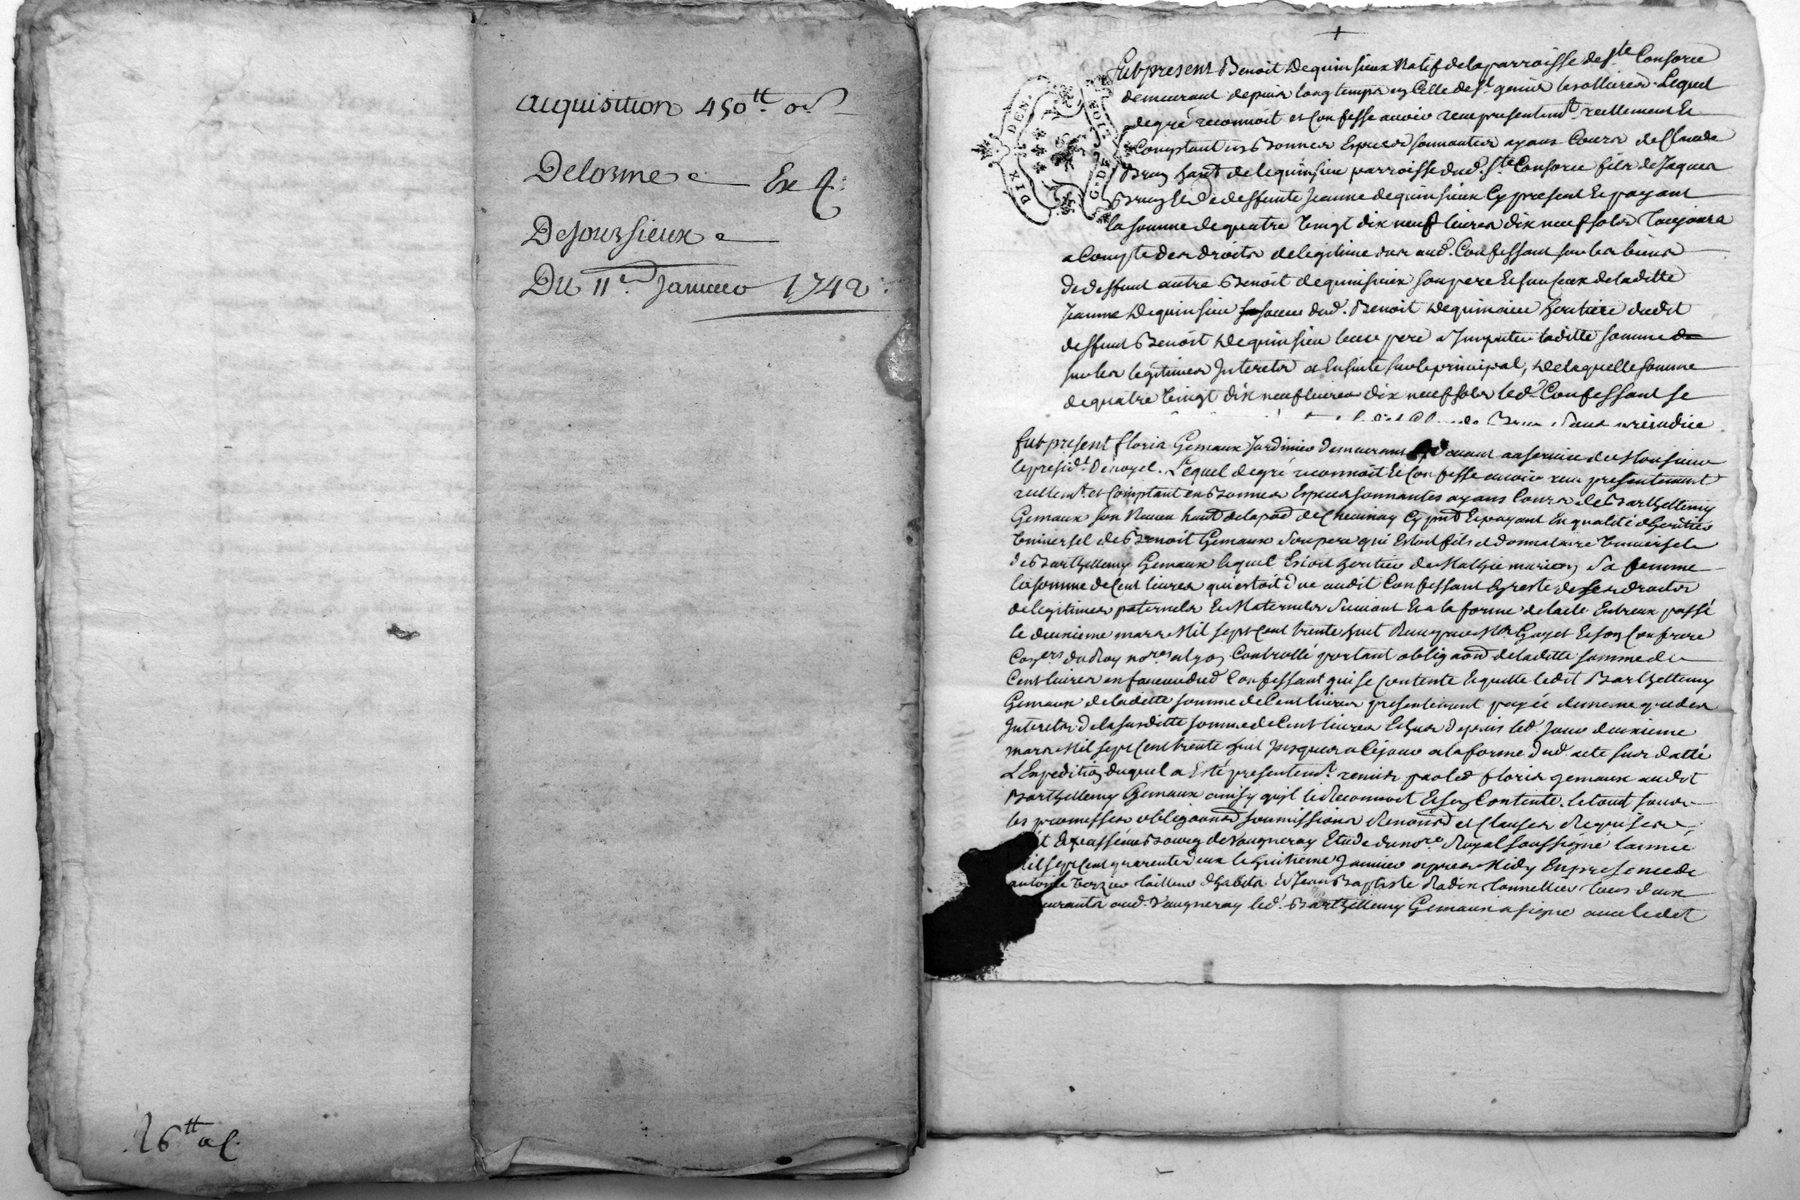 acquisition 450tt os
Delorme Ex 4
Desoursieux
Du 11e Janvier 1742
26tt a
DIX DEN.
G. DE LION
fut present Benoit Dequinsieux Natif de la parroisse de Ste Consorce
demeurant depuis long temps en Celle de St genis les ollieres Lequel
de gré reconnoit et confesse avoir receu presentemt reellement Et
Comptant en Bonnes Espesses sonnantes ayans Cours de Claude
Bruy habt de lequinsieu parroisse dud. Ste Consorce fils de Jaques
Bruy Et de deffunte Jeanne dequinsieux Cy present Et payant
la somme de quatre vingt dix neuf livres dix neuf sols Toujours
a Compte des droits de legitime dus aud. Confessant sur les biens
de deffunt autre Benoit dequinsieux son pere Et sur ceux de laditte
Jeanne dequinsieu sa soeur dud. Benoit Dequinsieu heritiere dudit
deffunt Benoit Dequinsieu leur pere a Imputer laditte somme
sur les legitimes Interets et Ensuite sur le principal, de laquelle somme
de quatre vingt dix neuf livres dix neuf sols led. Confessant se
Bruy Sans préjudice
fut present floris Gemaux Jardinier demeurant avant au service de Monsieur
le presidt Denoyel. Lequel de gré reconnoit Et Confesse avoir receu presentement
reellemt et Comptant en Bonnes Espesses sonnantes ayans Cours de Barthellemy
Gemaux son Neveu habt de la pard de Chevinay Cy pnt Et payant En qualité d'heritier
Universel de Benoit Gemaux son pere qui Estoit fils et donnataire Universel de
de Barthellemy Gemaux lequel Estoit heritier de Mathie marion Sa femme
la somme de Cent livres qui estoit due audit Confessant de reste de ses droits
de legitimes paternels Et Maternels Suivant Et a la forme de l'acte Entreux passé
le deuxieme mars Mil sept Cent trente huit Receu par Me Gayet Et son Confrere
Coners du Roy nores a lyon Controllé portant obligaon de laditte somme de
Cent livres en faveur dud Confessant qui se Contente Et quitte ledit Barthellemy
Gemaux de laditte somme de Cent livres presentement payée de meme que des
Interets de la susditte somme de Cent livres Echus depuis led. Jour deuxieme
mars Mil sept Cent trente huit Jusques a Ce jour a la forme dud. acte sus datté
L'Expedition duquel a Esté presentemt remise par led floris gemaux audit
Barthellemy Gemaux ainsy qu'il le Reconnoit Et son Contente. le tout sous
les promesses obligaons soumissions Renons et Clauses Requises
fait Et passé au Bourg de Vaugneray Etude du nore Royal soussigné l'année
Mil sept Cent quarente deux le huitieme Janvier apres Midy En presence de
antoine tailleur d'habits Et Jean Baptiste Radix tonnellier tous deux
demeurants aud. Vaugneray led. Barthellemy Gemaux a signé avec ledit